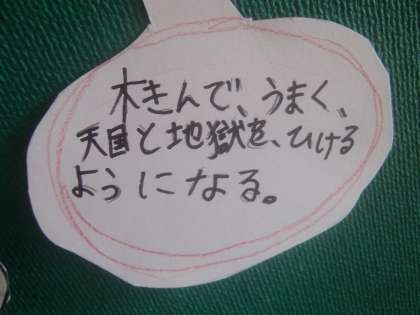 木きんで、うまく、
天国と地獄を、ひける
ようになる。